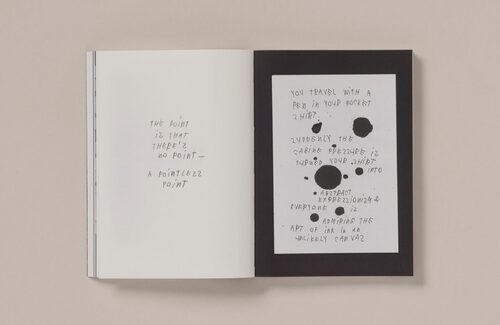 THE POINT
IS THAT
THERE'S
NO POINT —
A POINTLESS
POINT
YOU TRAVEL WITH A
PEN IN YOUR POCKET
SHIRT.
SUDDENLY THE
CABINE PRESSURE IS
TURNED YOUR SHIRT
INTO
ABSTRACT
EXPRESSIONISM &
EVERYONE IS
ADMIRING THE
ART OF INK IN AN
UNLIKELY CANVAS